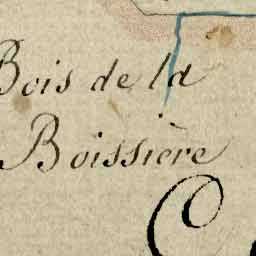 Bois de la
Boissière